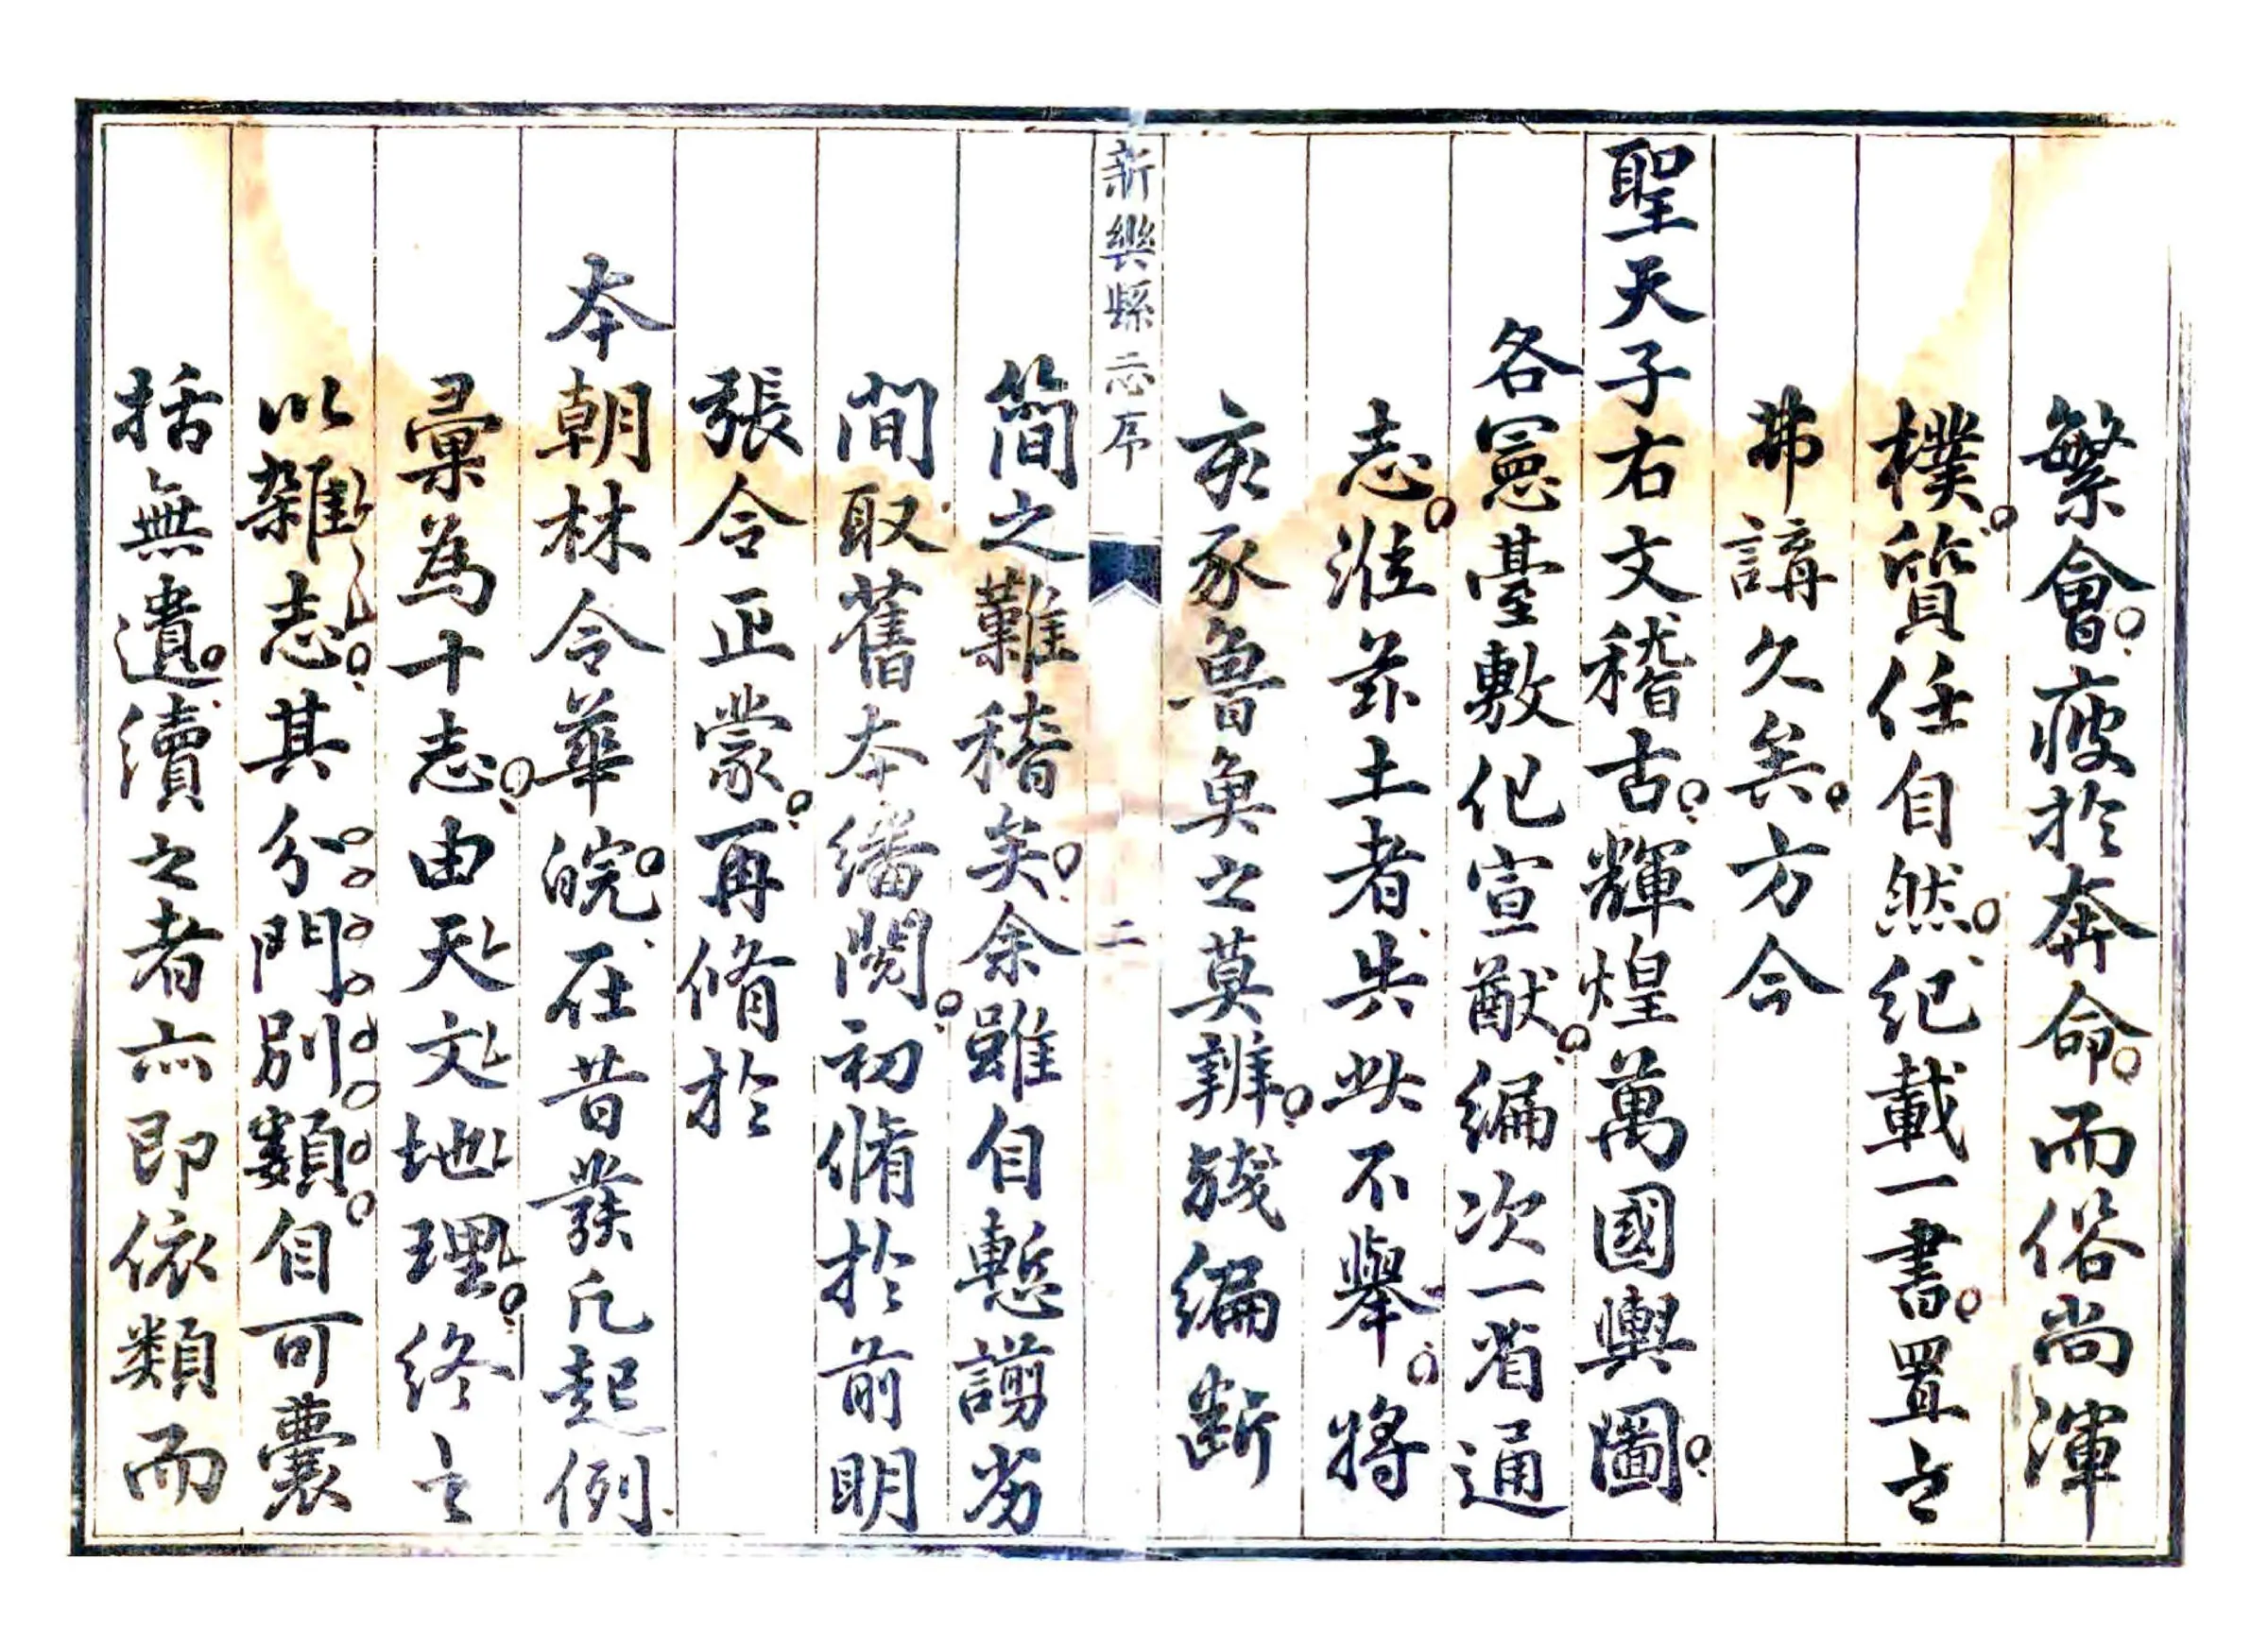 繁會疲於奔命而俗尚渾
樸質任自然紀載一書置之
弗講久矣方今
聖天子右文稽古輝煌萬國輿圖
各憲臺敷化宣猷編次一省通
志涖茲土者失此不舉將
亥豕魯魚之莫辨殘編斷
新興縣志序
二
簡之難稽矣余雖自慙謭劣
間取舊本繙閱初脩於前明
張令正蒙再脩於
本朝林令華皖在昔發凡起例
彙為十志由天文地理終之
以雜志其分門別類自可囊
括無遺續之者亦即依類而